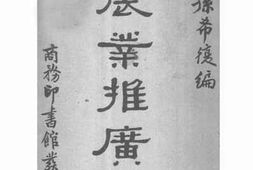 孫希復編
農業推廣
商務印書館發